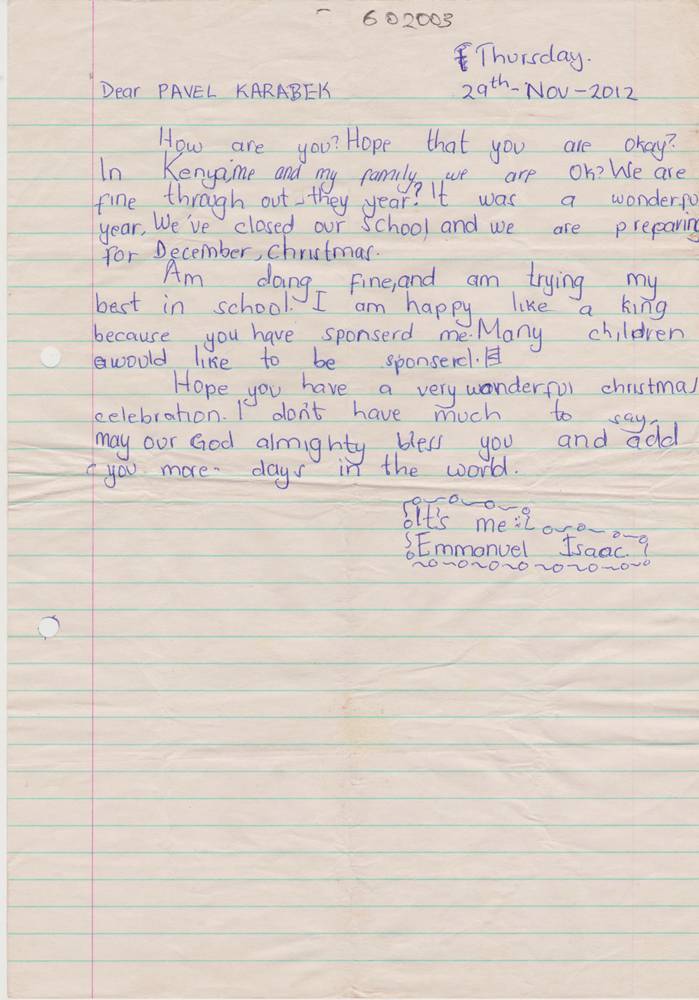 602003
Thursday.
Dear PAVEL KARABEK 29th-Nov-2012
How are you? Hope that you are okay?
In Kenya, me and my family we are Ok? We are
fine through out they year? It was a wonderfu
year, We've closed our school and we are preparing
for December, christmas.
Am doing fine, and am trying my
best in school. I am happy like a king
because you have sponserd me. Many children
would like to be sponserd.
Hope you have a very wonderful christmas
celebration. I don't have much to say,
may our God almighty bless you and add
you more days in the world.
It's me:
Emmanuel Isaac.